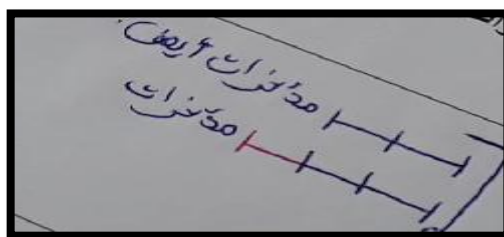 مدخرات أريفن
مدخرات